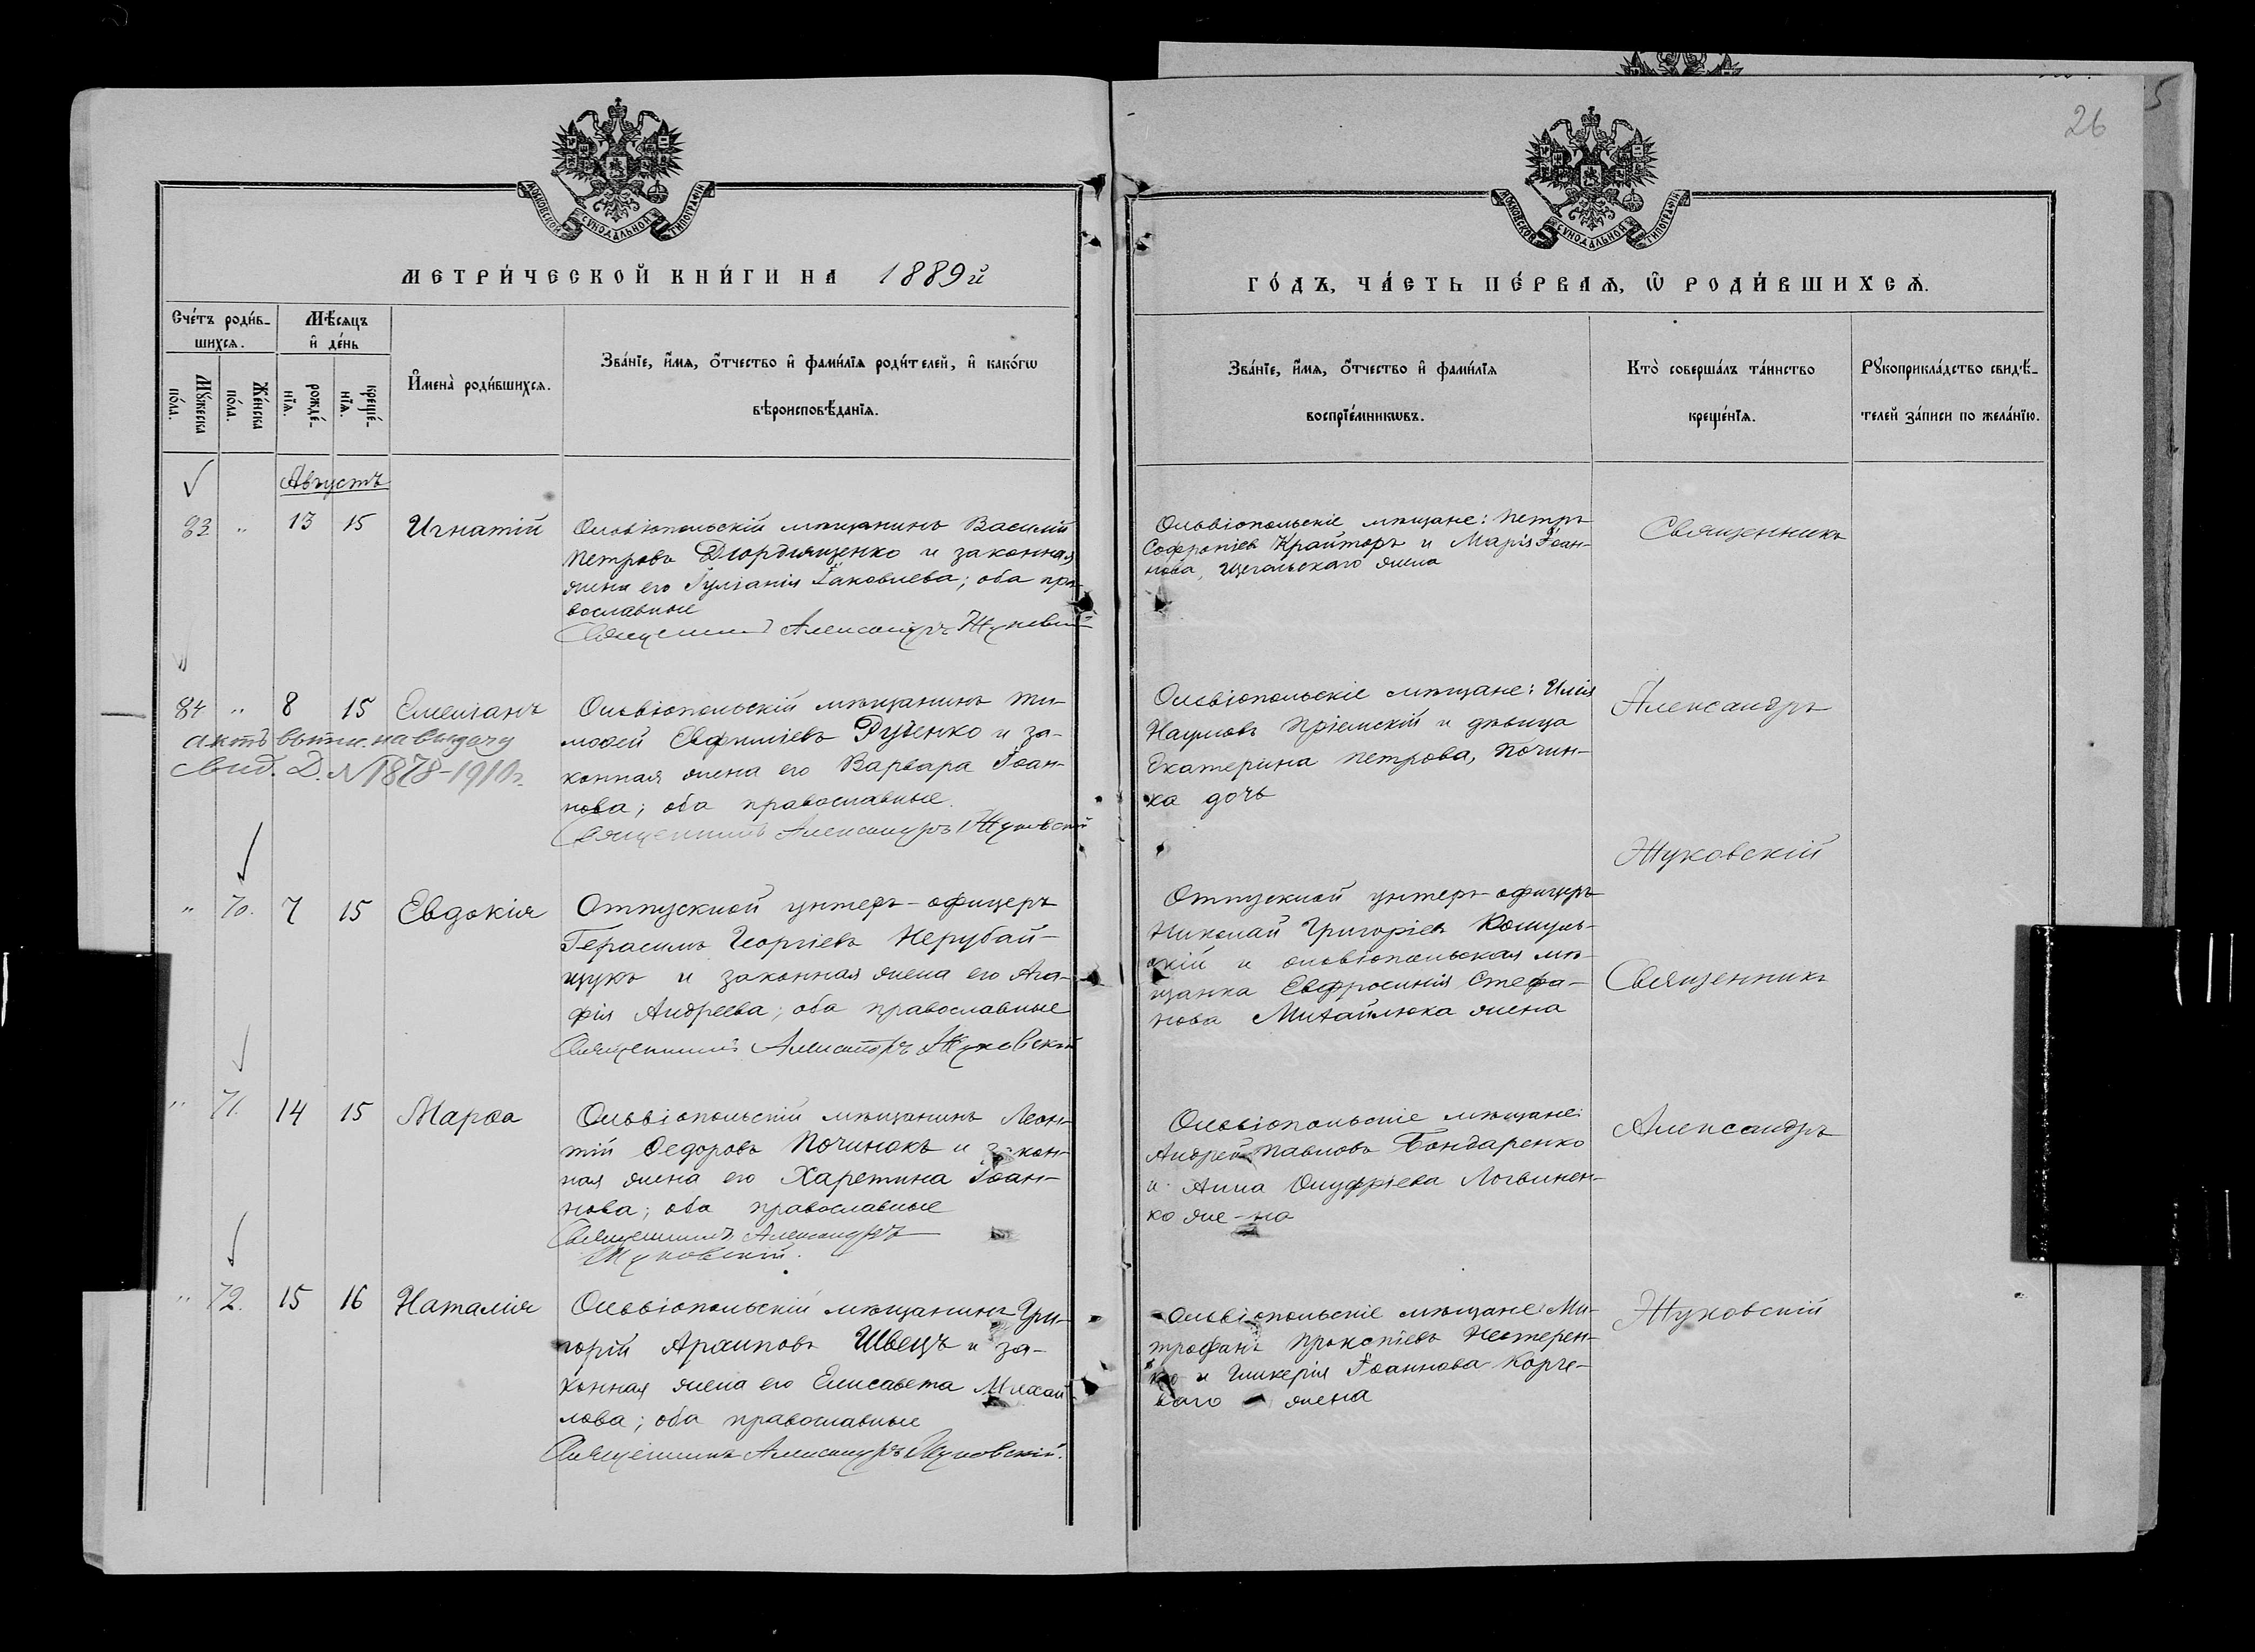 26
МОСКОВСКОЙ СѴНОДАЛЬНОЙ ТИПОГРАФІИ
МЕТРИ́ЧЕСКОЙ КНИ́ГИ НА 1889й
Сче́тъ роди́в-
шихсѧ.
Мѣ́сѧцъ
и҆ де́нь
И҆мена̀ роди́вшихсѧ.
Зва́нїе, и҆́мѧ, ѻ҆́тчество и҆ фами́лїѧ роди́телей, и҆ како́гѡ
вѣроисповѣ́данїѧ.
Мꙋ́жеска
по́ла.
Же́нска
по́ла.
рожде́-
нїѧ.
креще́-
нїѧ.
Августъ
83 " 13 15 Игнатій
Ольвіопольскій мѣщанинъ Василій
Петровъ Діордіященко и законная
жена его Іуліанія Іаковлева; оба пра-
вославные
Священникъ Александръ Жуковскій
84 " 8 15 Емеліанъ
Ольвіопольскій мѣщанинъ Ти-
моѳей Евфиміевъ Руденко и за-
конная жена его Варвара Іоан-
нова; оба православные.
Священникъ Александръ Жуковскій
актъ выпис. на выдачу
свид. Д. N 1878-1910г.
" 70. 7 15 Евдокія
Отпускной унтеръ-офицеръ
Герасимъ Георгіевъ Нерубай-
щукъ и законная жена его Ага-
фія Андреева; оба православные
Священникъ Александръ Жуковскій
" 71. 14 15 Марѳа
Ольвіопольскій мѣщанинъ Леон-
тій Ѳедоровъ Починокъ и закон-
ная жена его Харетина Іоан-
нова; оба православные
Священникъ Александръ
Жуковскій.
" 72. 15 16 Наталія
Ольвіопольскій мѣщанинъ Гри-
горій Архиповъ Швецъ и за-
конная жена его Елисавета Михай-
лова; оба православные
Священникъ Александръ Жуковскій.
МОСКОВСКОЙ СѴНОДАЛЬНОЙ ТИПОГРАФІИ
ГО́ДЪ, ЧА́СТЬ ПЕ́РВАѦ, Ѽ РОДИ́ВШИХСѦ.
Зва́нїе, и҆́мѧ, ѻ҆́тчество и҆ фами́лїѧ
воспрїе́мникѡвъ.
Кто̀ соверша́лъ та́инство
креще́нїѧ.
Рꙋкоприкла́дство свидѣ́-
телей за́писи по жела́нїю.
Ольвіопольскіе мѣщане: Петръ
Софроніевъ Крайторъ и Марія Іоан-
нова, Щегольскаго жена
Священникъ
Ольвіопольскіе мѣщане: Илія
Наумовъ Пріемскій и дѣвица
Екатерина Петрова, Почин-
ка дочь
Александръ
Жуковскій
Отпускной унтеръ-офицеръ
Николай Григоріевъ Кошуль-
скій и ольвіопольская мѣ-
щанка Евфросинія Стефа-
нова Михайлюка жена
Священникъ
Ольвіопольскіе мѣщане:
Андрей Павловъ Бондаренко
и Анна Онуфріева Логвинен-
ко же-на
Александръ
Ольвіопольскіе мѣщане: Ми-
трофанъ Прокопіевъ Нестерен-
ко и Гликерія Іоаннова Корче-
ваго жена
Жуковскій